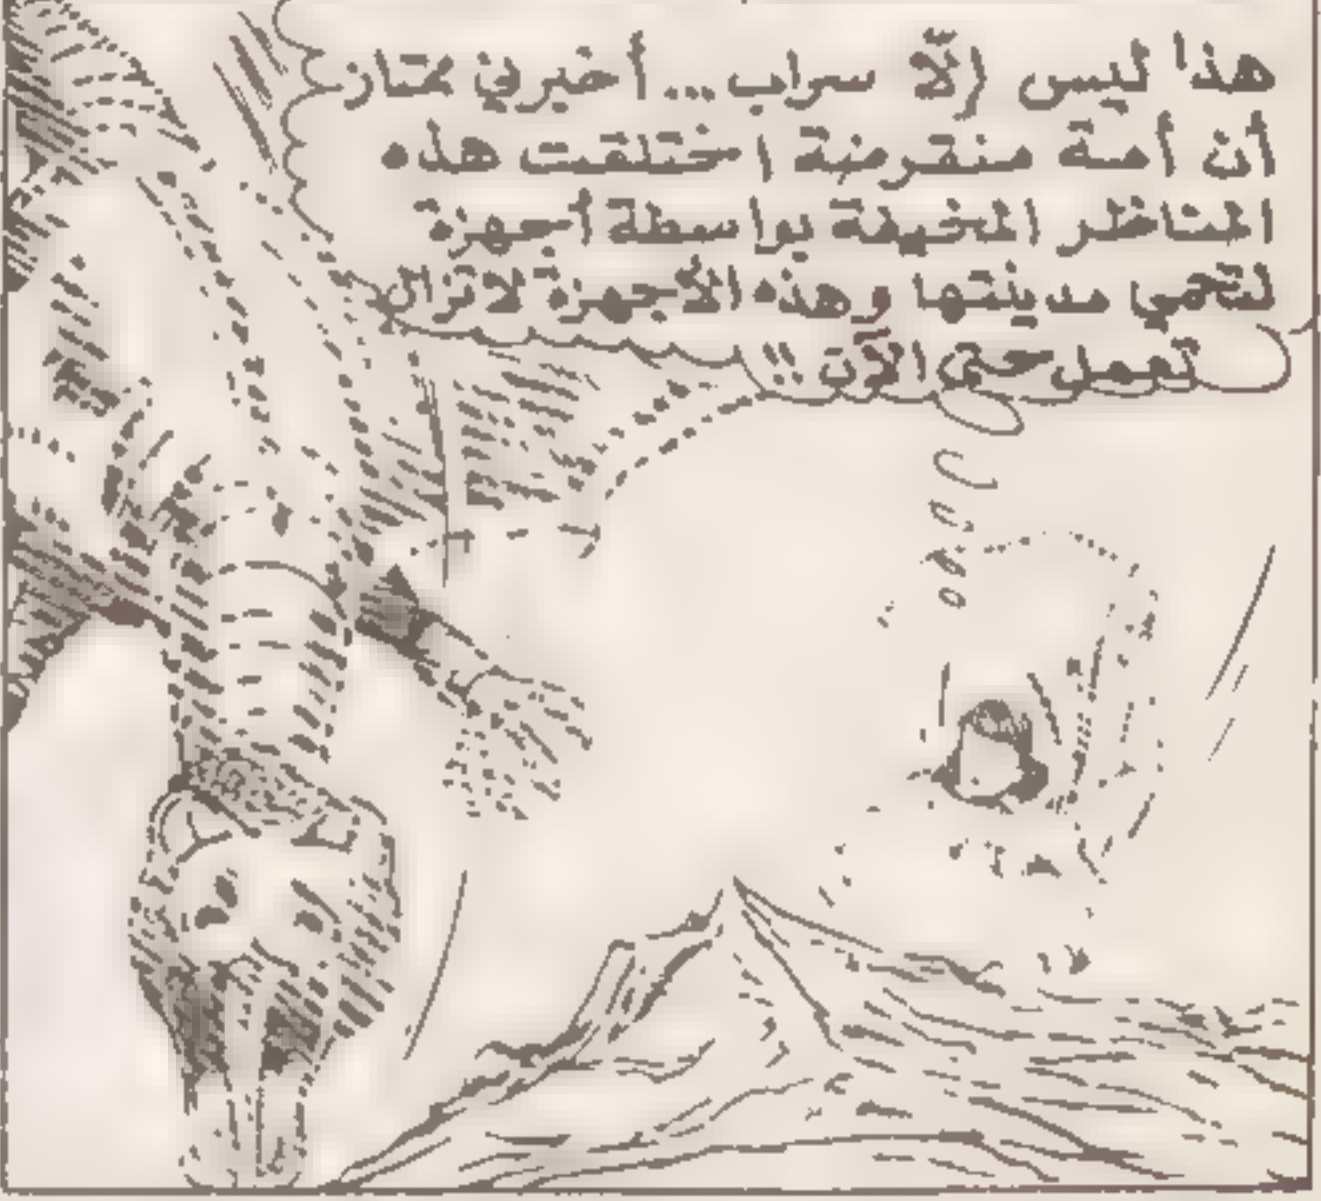 هذا ليس إلّا سراب... أخبرني ممتاز
أن أمة منقرضة اختلقت هذه
المناظر المخيفة بواسطة أجهزة
لتحمي مدينتها وهذه الأجهزة لا تزال
تعمل حتى الآن !!